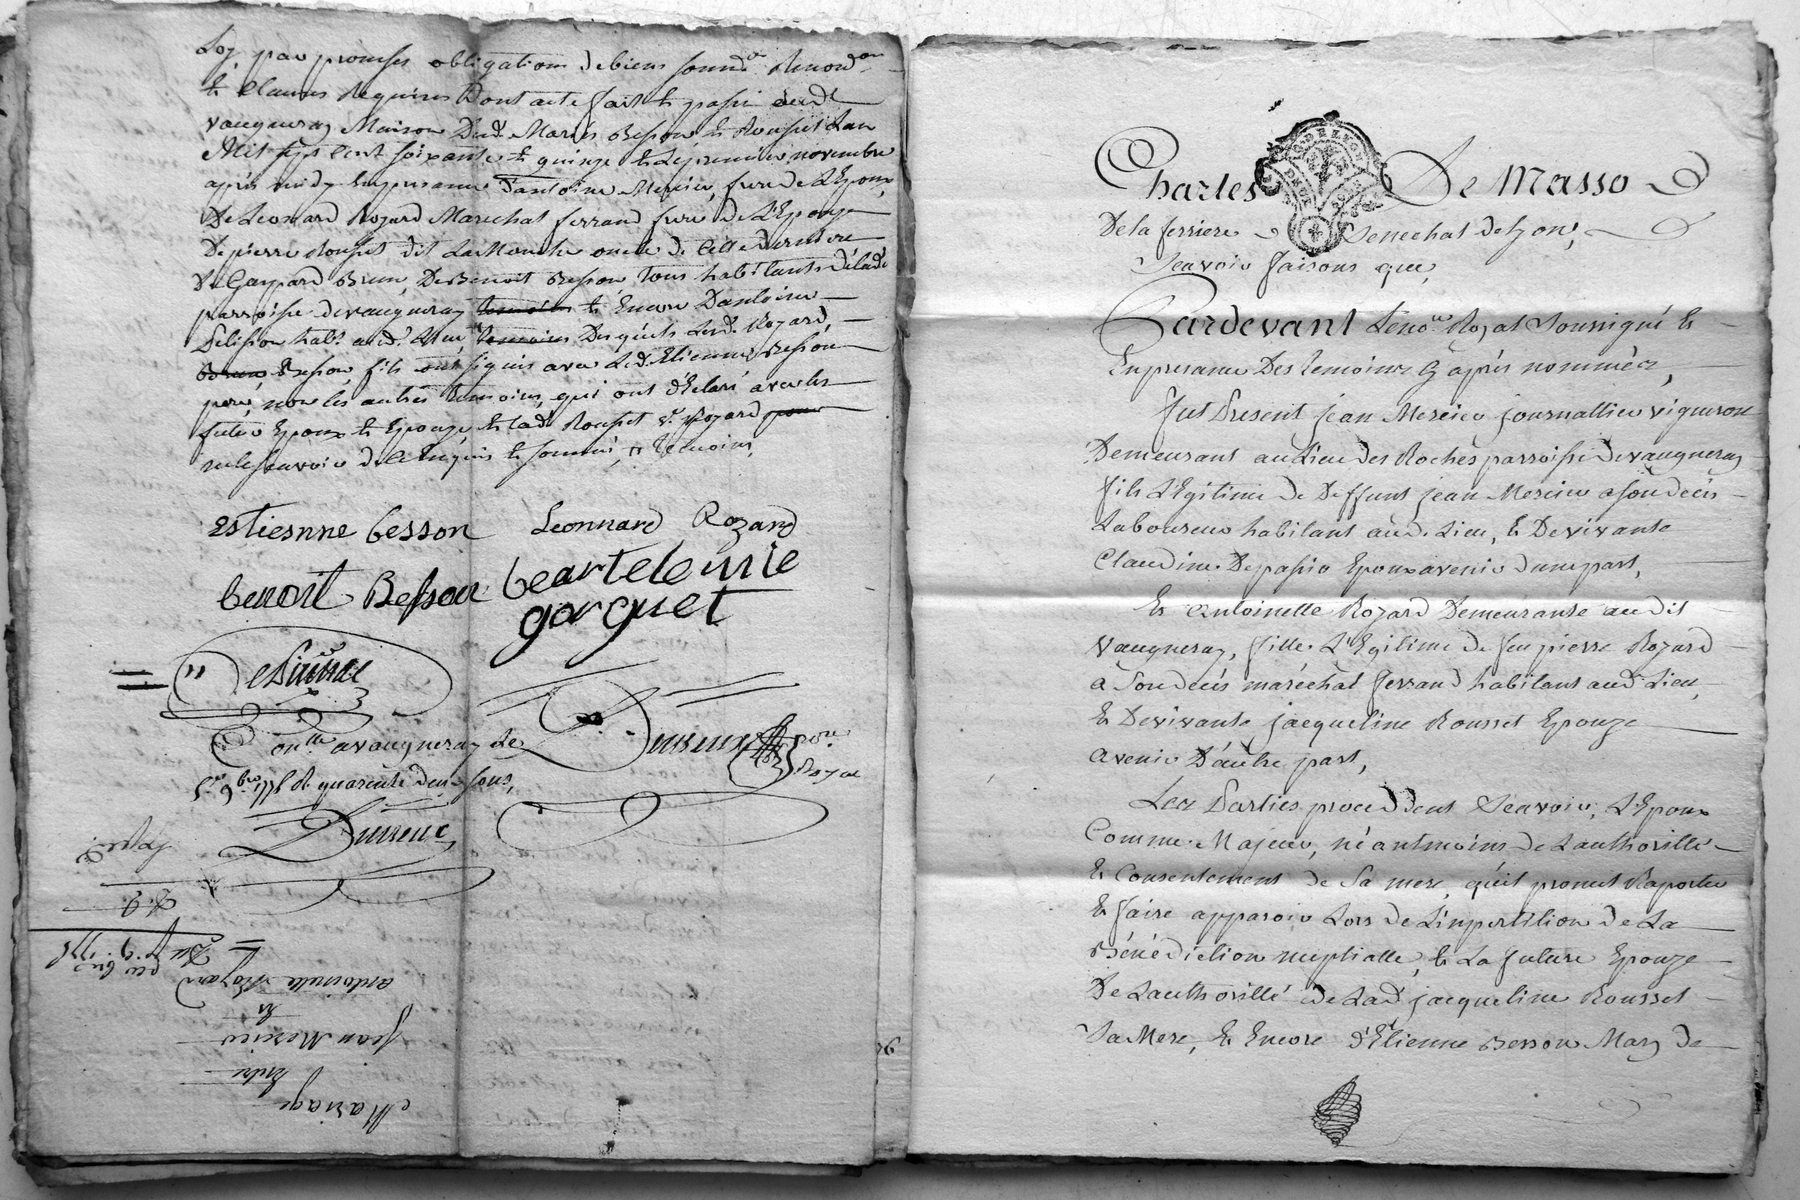 Loy, par promesses obligations de biens soumds Renondon
et Clauses Requises dont acte fait et passé audt
vaugneray Maison dud. Mariés Besson et Rousset Lan
Mil sept cent soixante et quinze et Le premier novembre
après midy En presance d'antoine Mercier, frere de L'Epoux,
De Leonard Rozard Marechal ferrand frere de L'Epouze
De pierre Rousset dit La oncle de Cette derniere
De Gaspard Brun, De Benoit Besson tous habitants delade
parroisse de vaugneray temoins et Encore D'antoine
Pelisson habt. aud. Lieu, temoins Desquels Led. Rozard,
Besson fils ont signés avec Led. Etienne Besson
pere, non les autres temoins, qui ont déclaré avec les
futurs Epoux et Epouze, et lad. Rousset ve. Rozard pour
ne le sçavoir de ce Enquis et sommés, temoins,
estiesnne besson Leonnard Rozard
benoit Besson beartelemie
gorguet
Conlle a vaugneray Le
9bre 1775 R quarente deux sous,
Royal
Du 1er 9bre 1775
antoinette Rozard
Et
Jean Mercier
Entre
Mariage
Charles De Masso
De la ferriere Senechal de Lyon,
Sçavoir faisons que,
Pardevant Le nore Royal Soussigné Et
En presance Des temoins Cy après nommées,
fut Present jean Mercier journallier vigneron
Demeurant au Lieu des Roches parroisse de vaugneray
fils L'Egitime de Deffunt jean Mercier a son decès
Laboureur habitant aud. Lieu, Et De vivante
Claudine Depassio Epoux avenir d'une part,
Et Antoinette Rozard Demeurante au dit
Vaugneray, fille L'Egitime de feu pierre Rozard
a Son decès maréchal ferrand habitant aud. Lieu,
Et De vivante jacqueline Rousset Epouze
avenir D'autre part,
Lez Parties proceddent Sçavoir, L'Epoux
Comme Majeur, néantmoins de L'authorillé
Et Consentement de Sa mere, qu'il promet Raporter
Et faire apparoir Lors de L'impertition de La
Bénédiction nuptialle, Et La future Epouze
De L'authorillé de Lad. jacqueline Rousset
Sa Mere, Et Encore d'Etienne Besson Mary de